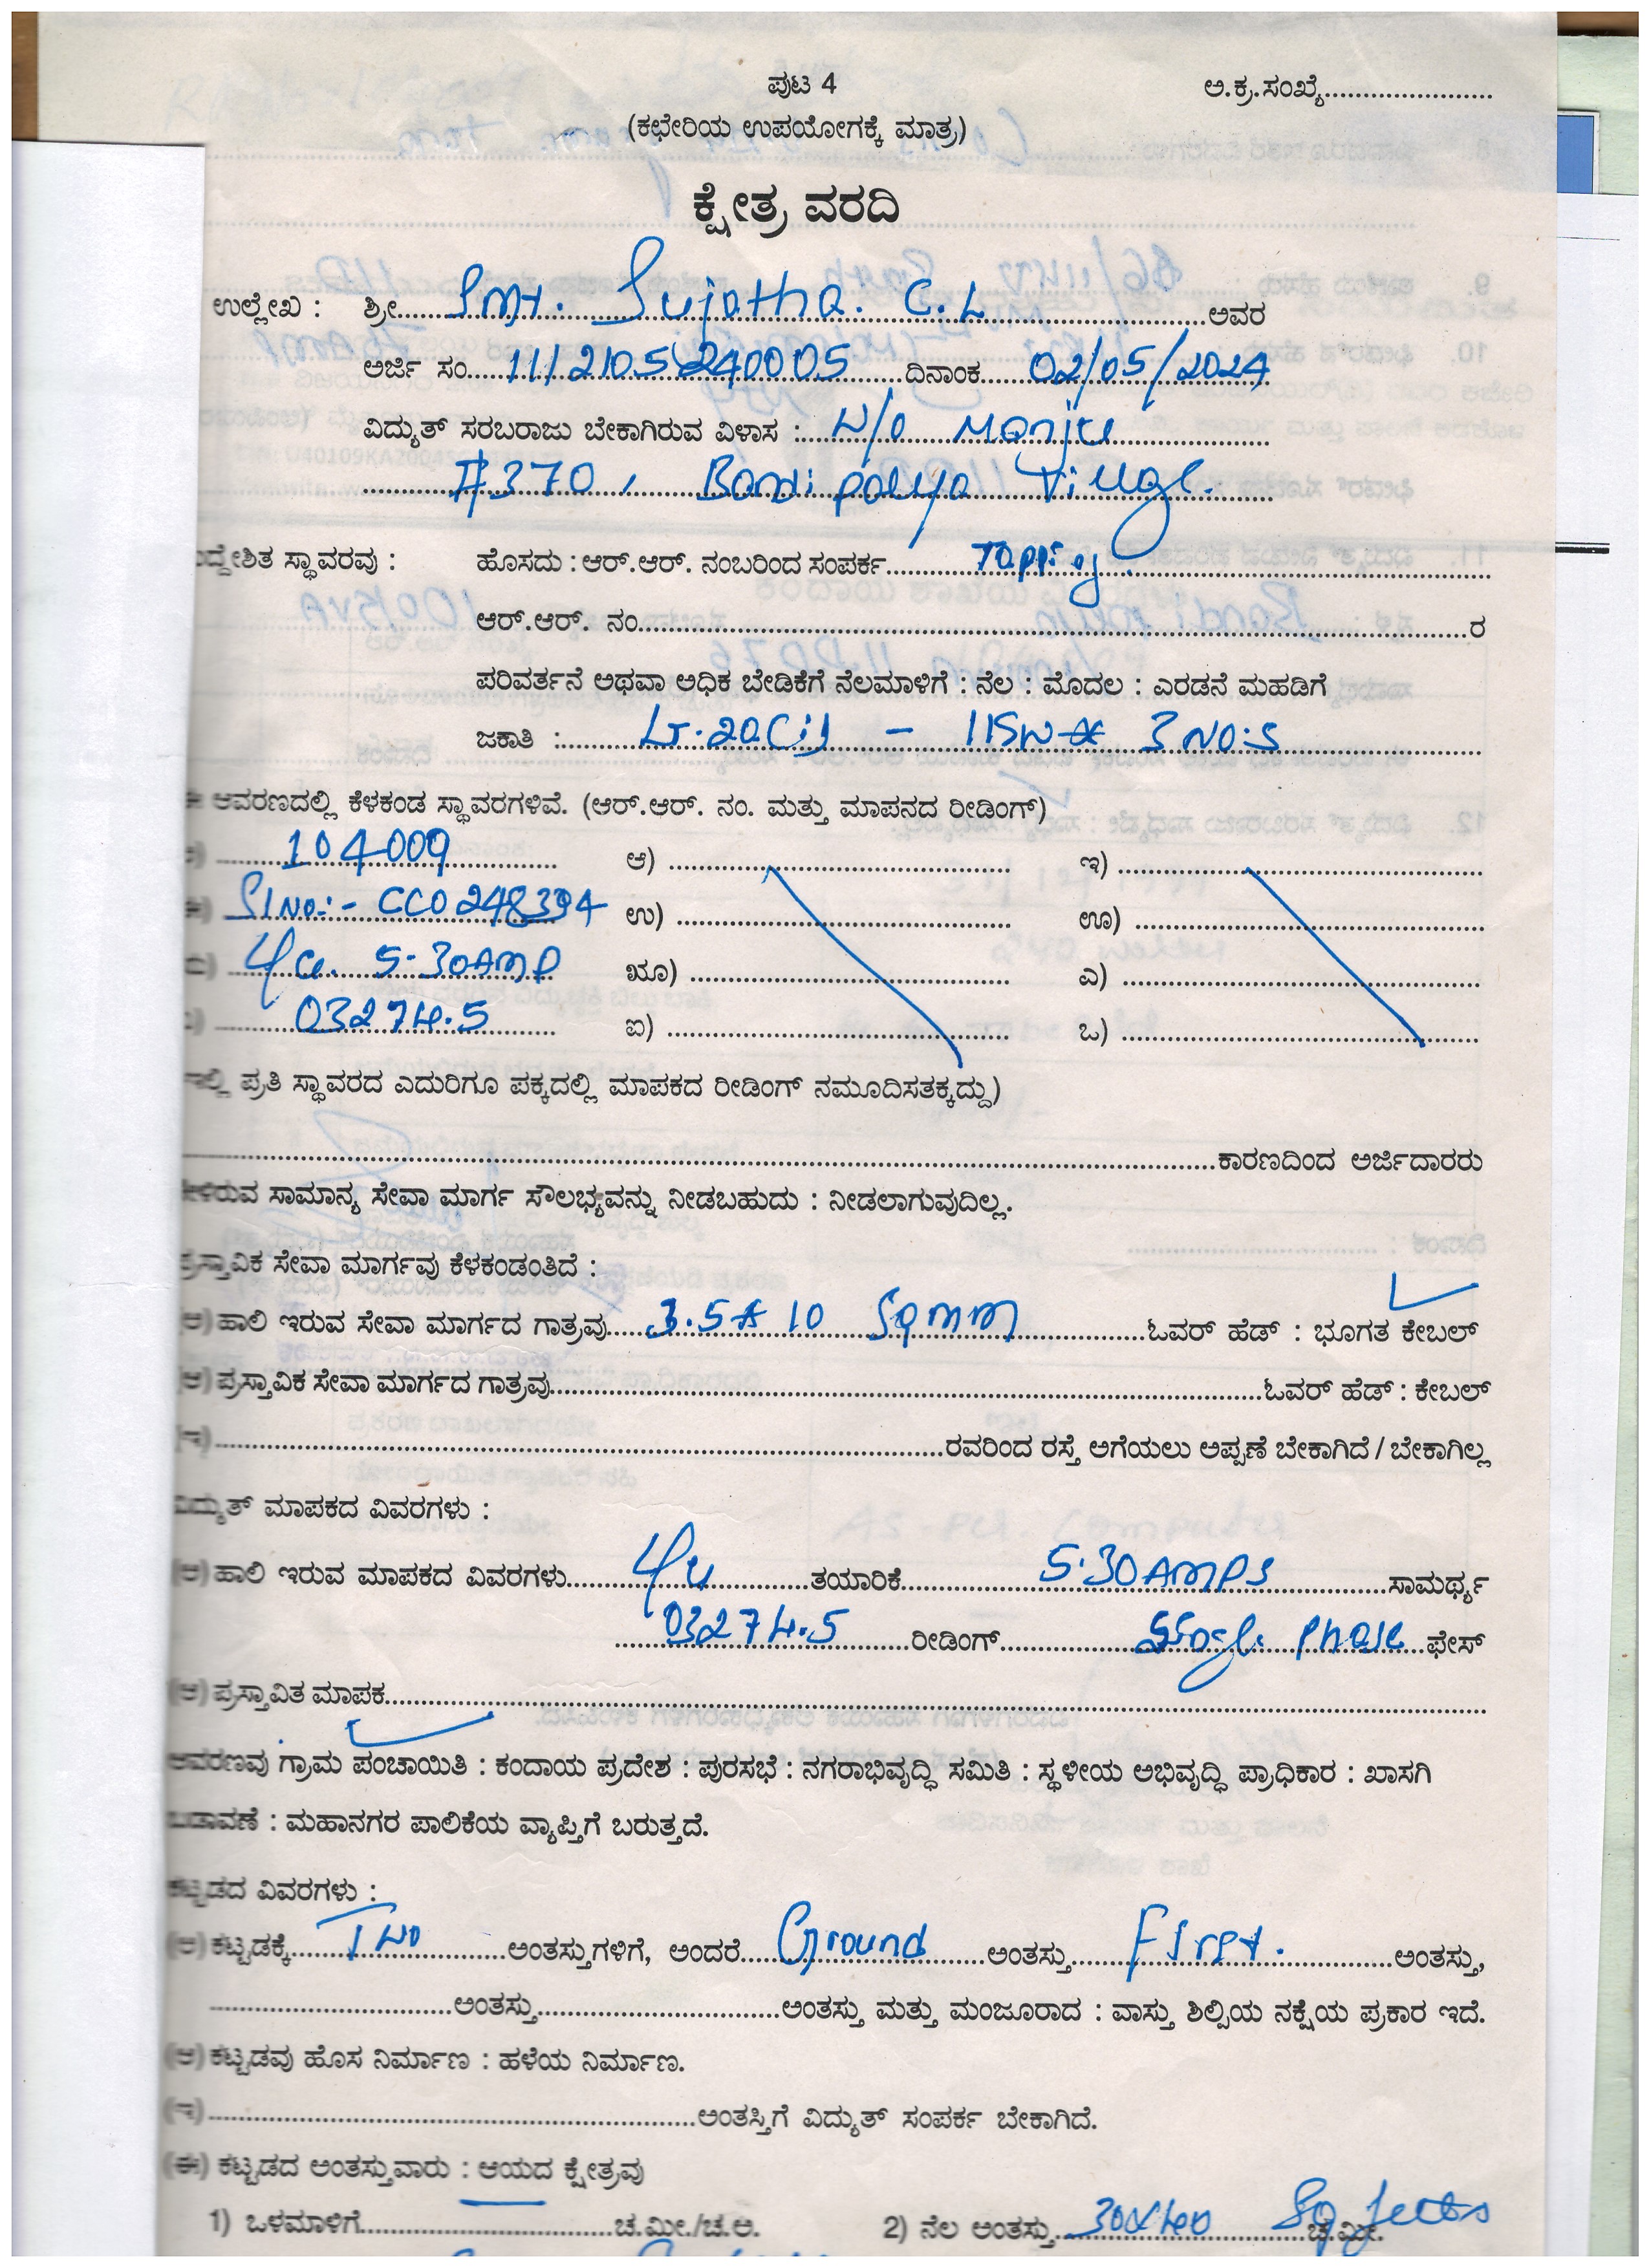 ಪುಟ 4
ಅ.ಕ್ರ.ಸಂಖ್ಯೆ........................
(ಕಛೇರಿಯ ಉಪಯೋಗಕ್ಕೆ ಮಾತ್ರ)
ಕ್ಷೇತ್ರ ವರದಿ
ಉಲ್ಲೇಖ : ಶ್ರೀ..... Smt. Sujatha. C.L ..........ಅವರ
ಅರ್ಜಿ ಸಂ..... 1112105240005 ......ದಿನಾಂಕ.... 02/05/2024
ವಿದ್ಯುತ್ ಸರಬರಾಜು ಬೇಕಾಗಿರುವ ವಿಳಾಸ :.... W/o Manju
#370, Bandipalya Village.
ದ್ದೇಶಿತ ಸ್ಥಾವರವು : ಹೊಸದು : ಆರ್.ಆರ್. ನಂಬರಿಂದ ಸಂಪರ್ಕ......... Tapping.
ಆರ್.ಆರ್. ನಂ..........................ರ
ಪರಿವರ್ತನೆ ಅಥವಾ ಅಧಿಕ ಬೇಡಿಕೆಗೆ ನೆಲಮಾಳಿಗೆ : ನೆಲ : ಮೊದಲ : ಎರಡನೆ ಮಹಡಿಗೆ
ಜಕಾತಿ :......... LT.2a(i) - 3 NO:S
ಆವರಣದಲ್ಲಿ ಕೆಳಕಂಡ ಸ್ಥಾವರಗಳಿವೆ. (ಆರ್.ಆರ್. ನಂ. ಮತ್ತು ಮಾಪನದ ರೀಡಿಂಗ್)
104009 ಆ) .......... ಇ) ..........
Sl No:- CC0248394 ಉ) .......... ಊ) ..........
5-30AMP ಋೂ) .......... ಎ) ..........
03274.5 ಐ) .......... ಒ) ..........
ಪ್ರತಿ ಸ್ಥಾವರದ ಎದುರಿಗೂ ಪಕ್ಕದಲ್ಲಿ ಮಾಪಕದ ರೀಡಿಂಗ್ ನಮೂದಿಸತಕ್ಕದ್ದು)
..........................ಕಾರಣದಿಂದ ಅರ್ಜಿದಾರರು
ಸಾಮಾನ್ಯ ಸೇವಾ ಮಾರ್ಗ ಸೌಲಭ್ಯವನ್ನು ನೀಡಬಹುದು : ನೀಡಲಾಗುವುದಿಲ್ಲ.
ಪ್ರಸ್ತಾವಿಕ ಸೇವಾ ಮಾರ್ಗವು ಕೆಳಕಂಡಂತಿದೆ :
(ಅ) ಹಾಲಿ ಇರುವ ಸೇವಾ ಮಾರ್ಗದ ಗಾತ್ರವು.... 3.5* 10 Sqmm ..........ಓವರ್ ಹೆಡ್ : ಭೂಗತ ಕೇಬಲ್
(ಆ) ಪ್ರಸ್ತಾವಿಕ ಸೇವಾ ಮಾರ್ಗದ ಗಾತ್ರವು..........................ಓವರ್ ಹೆಡ್ : ಕೇಬಲ್
(ಇ)..........................ರವರಿಂದ ರಸ್ತೆ ಅಗೆಯಲು ಅಪ್ಪಣೆ ಬೇಕಾಗಿದೆ / ಬೇಕಾಗಿಲ್ಲ
ವಿದ್ಯುತ್ ಮಾಪಕದ ವಿವರಗಳು :
(ಅ) ಹಾಲಿ ಇರುವ ಮಾಪಕದ ವಿವರಗಳು..........ತಯಾರಿಕೆ.......... 5-30AMPS ..........ಸಾಮರ್ಥ್ಯ
03274.5 ......ರೀಡಿಂಗ್.......... Single Phase ..ಫೇಸ್
(ಆ) ಪ್ರಸ್ತಾವಿತ ಮಾಪಕ..........................
ಆವರಣವು ಗ್ರಾಮ ಪಂಚಾಯಿತಿ : ಕಂದಾಯ ಪ್ರದೇಶ : ಪುರಸಭೆ : ನಗರಾಭಿವೃದ್ಧಿ ಸಮಿತಿ : ಸ್ಥಳೀಯ ಅಭಿವೃದ್ಧಿ ಪ್ರಾಧಿಕಾರ : ಖಾಸಗಿ
ಬಡಾವಣೆ : ಮಹಾನಗರ ಪಾಲಿಕೆಯ ವ್ಯಾಪ್ತಿಗೆ ಬರುತ್ತದೆ.
ಕಟ್ಟಡದ ವಿವರಗಳು :
(ಅ) ಕಟ್ಟಡಕ್ಕೆ.... Two ......ಅಂತಸ್ತುಗಳಿಗೆ, ಅಂದರೆ.... Ground ....ಅಂತಸ್ತು.... First. ......ಅಂತಸ್ತು,
..........ಅಂತಸ್ತು..........ಅಂತಸ್ತು ಮತ್ತು ಮಂಜೂರಾದ : ವಾಸ್ತು ಶಿಲ್ಪಿಯ ನಕ್ಷೆಯ ಪ್ರಕಾರ ಇದೆ.
(ಆ) ಕಟ್ಟಡವು ಹೊಸ ನಿರ್ಮಾಣ : ಹಳೆಯ ನಿರ್ಮಾಣ.
(ಇ)..........................ಅಂತಸ್ತಿಗೆ ವಿದ್ಯುತ್ ಸಂಪರ್ಕ ಬೇಕಾಗಿದೆ.
(ಈ) ಕಟ್ಟಡದ ಅಂತಸ್ತುವಾರು : ಆಯದ ಕ್ಷೇತ್ರವು
1) ಒಳಮಾಳಿಗೆ..........................ಚ.ಮೀ./ಚ.ಅ. 2) ನೆಲ ಅಂತಸ್ತು.. 30X40 Sq feets ಚ.ಮೀ.